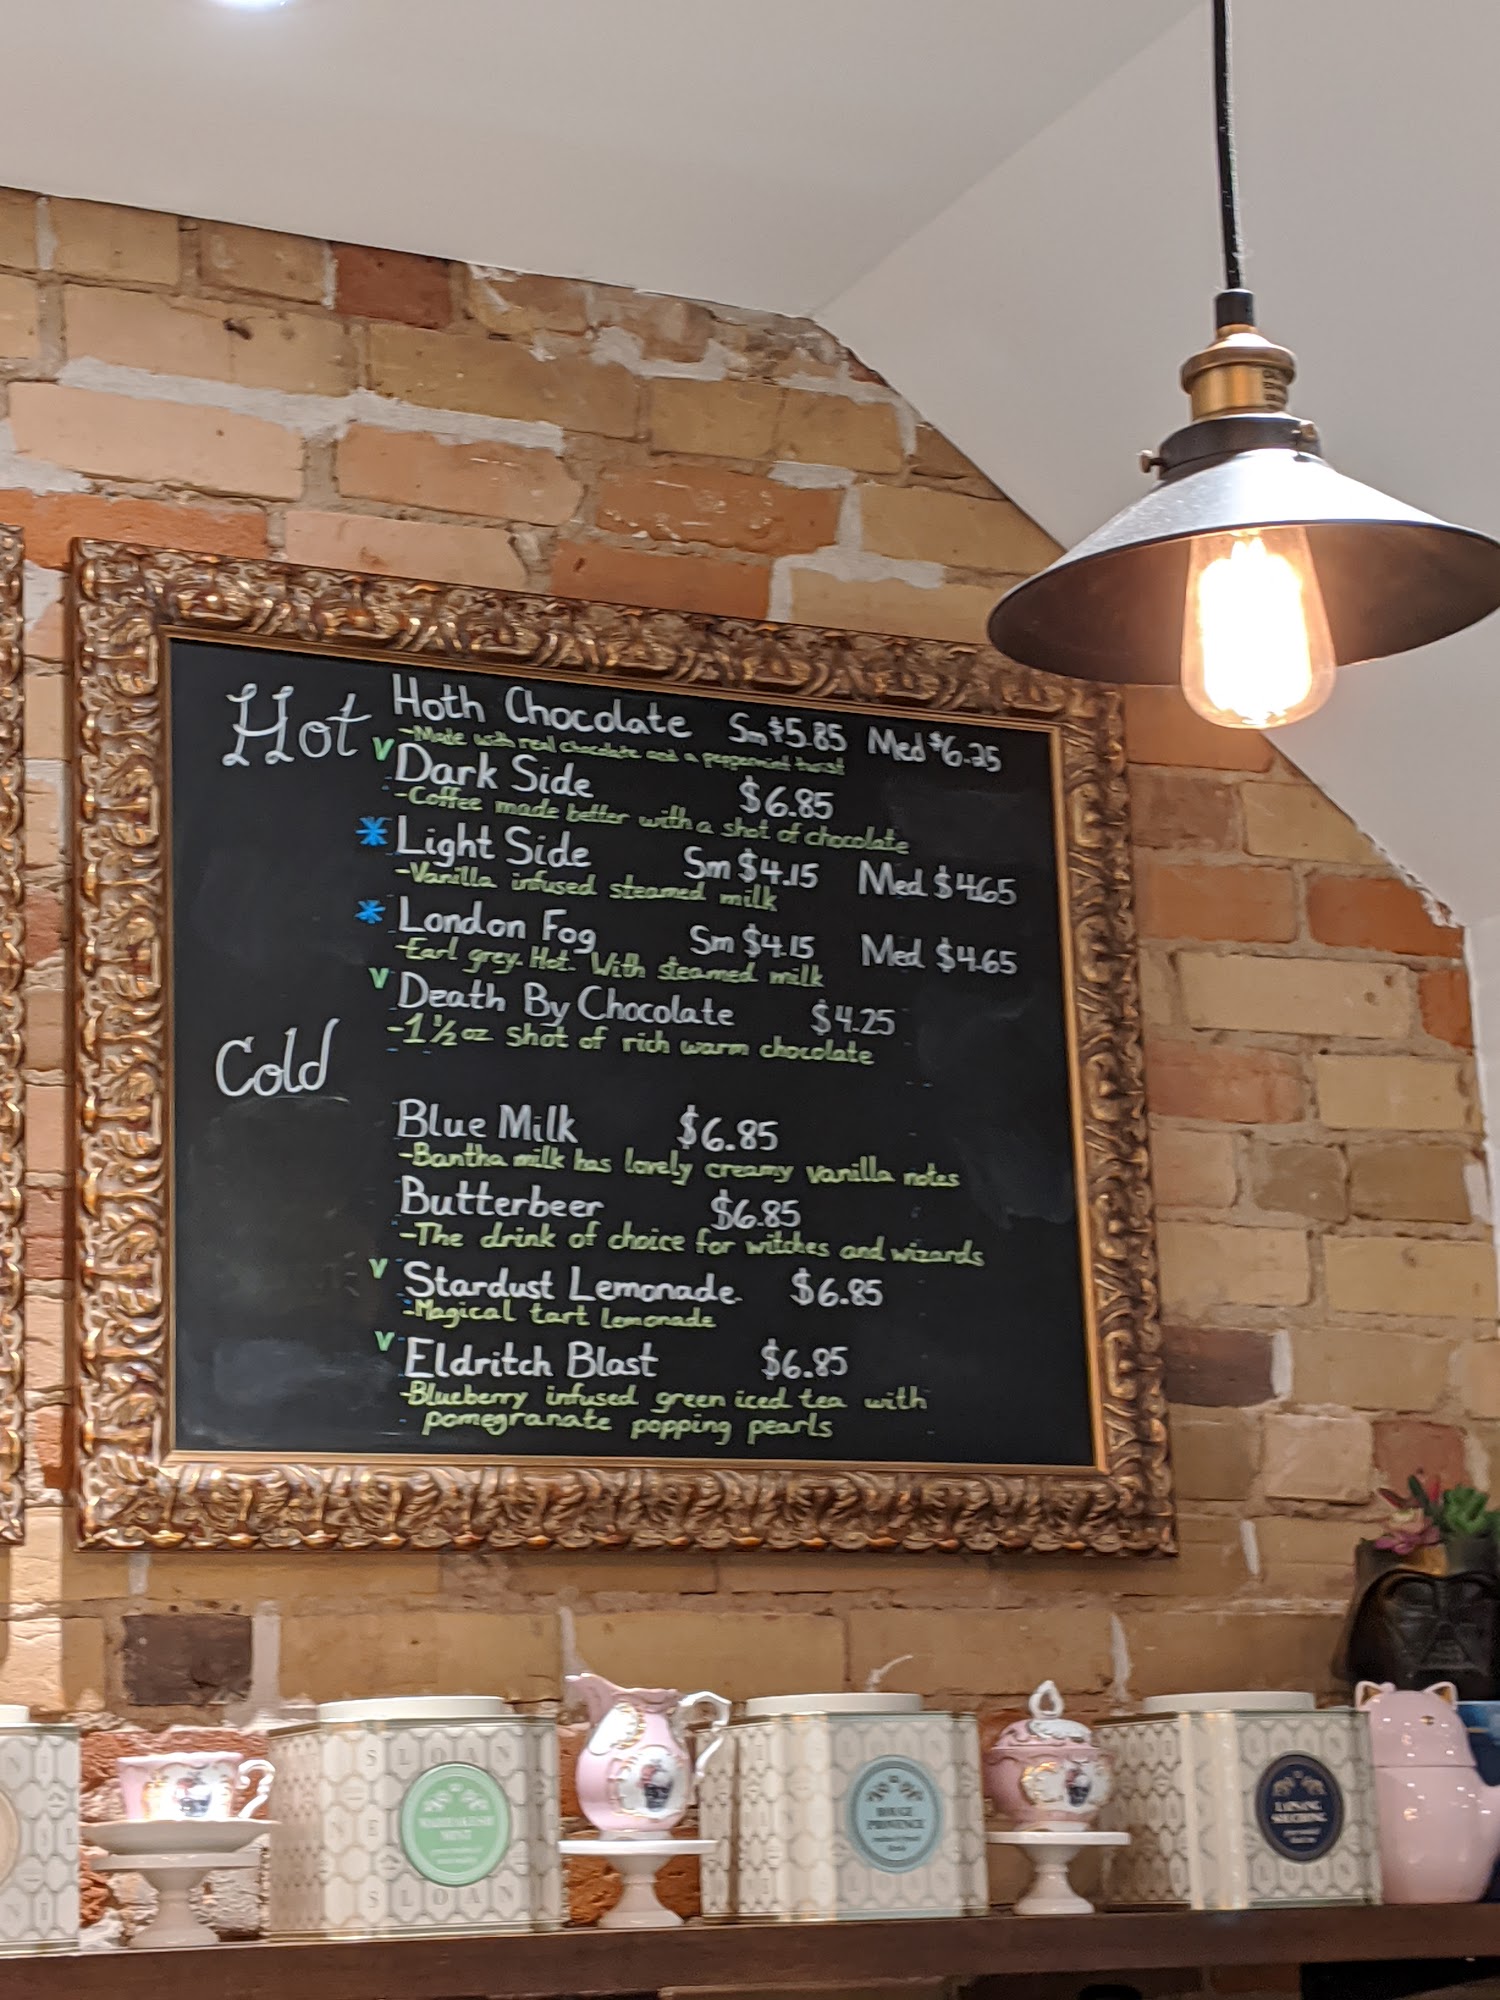 Hot
Hoth Chocolate Sm $5.85 Med $6.25
-Made with real chocolate and a peppermint twist
V Dark Side $6.85
-Coffee made better with a shot of chocolate
* Light Side Sm $4.15 Med $4.65
-Vanilla infused steamed milk
* London Fog Sm $4.15 Med $4.65
-Earl grey. Hot. With steamed milk
V Death By Chocolate $4.25
-1 1/2 oz shot of rich warm chocolate
Cold
Blue Milk $6.85
-Bantha milk has lovely creamy vanilla notes
Butterbeer $6.85
-The drink of choice for witches and wizards
V Stardust Lemonade $6.85
-Magical tart lemonade
V Eldritch Blast $6.85
-Blueberry infused green iced tea with
pomegranate popping pearls
SLOAN
MARRAKESH
MINT
SLOAN
ROUGE
PROVENCE
LAPSANG
SOUCHONG
LOAN